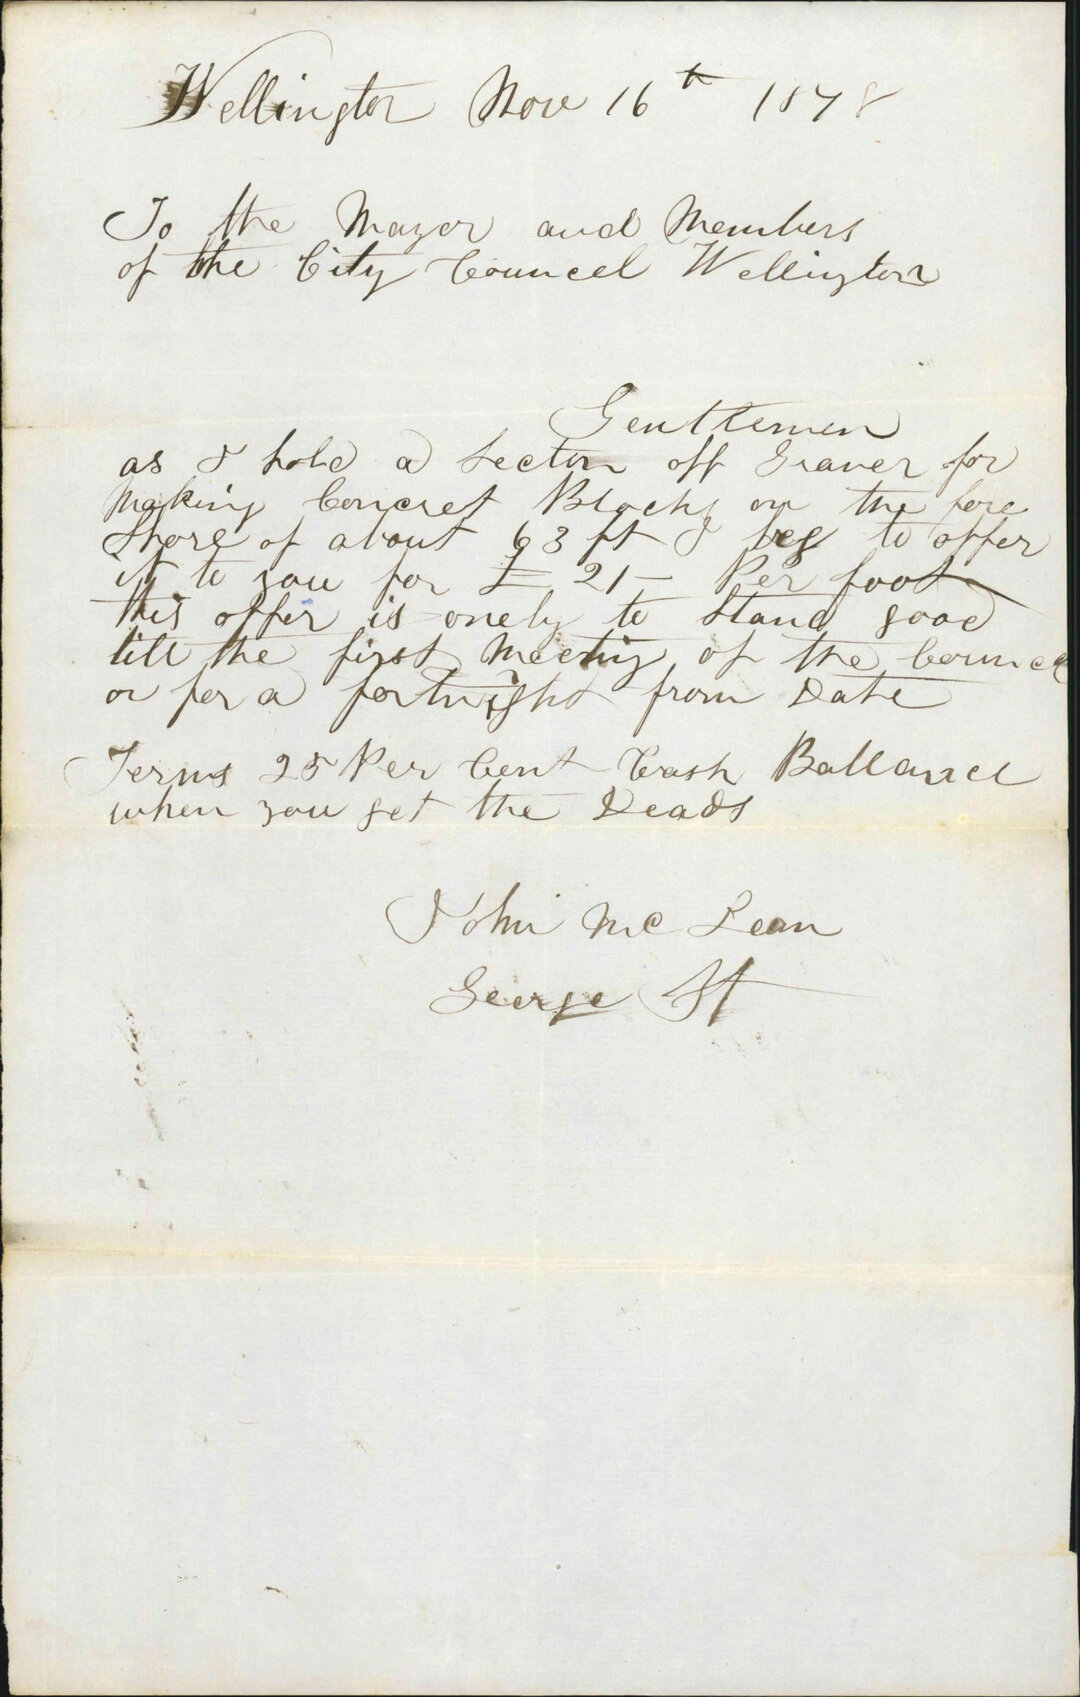 Wellington Nov 16th 1878
To the Mayor and Members
of the City Councel Wellington
Gentlemen
as I hold a Section off Graver for
Making Concret Blocks on the fore
Shore of about 63 ft I beg to offer
it to you for £ 21 — Per foot
this offer is onely to Stand good
till the first Meeting of the Councel
or for a fortnight from Date
Terms 25 Per Cent Cash Ballance
when you get the Deads
John Mc Lean
George St